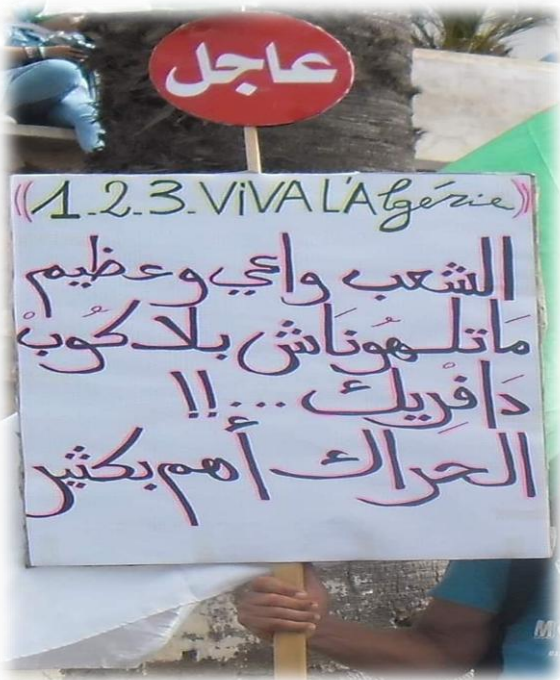 عاجل
((1.2.3.ViVA L'Algérie))
الشعب واعي وعظيم
مَاتلهُونَاش بلاكُوبْ
دَافْريك ...!!
الحَراك أهم بكثير